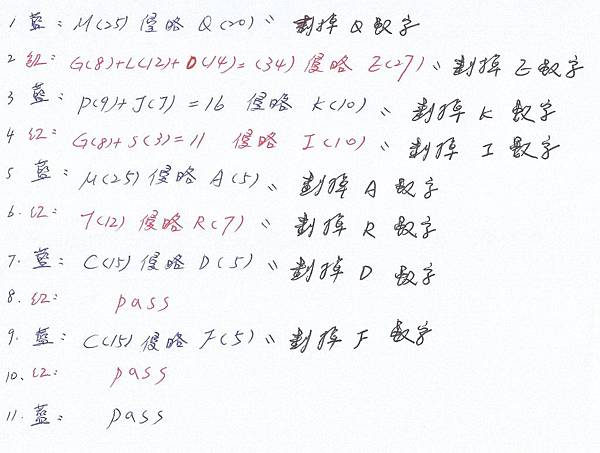 1 藍：M(25) 侵略 Q(20)〃 劃掉 Q 數字
2 紅：G(8)+L(12)+O(14)=(34) 侵略 E(27)〃 劃掉 E 數字
3 藍：P(9)+J(7)=16 侵略 K(10)〃 劃掉 K 數字
4 紅：G(8)+S(3)=11 侵略 I(10)〃 劃掉 I 數字
5 藍：M(25) 侵略 A(5)〃 劃掉 A 數字
6. 紅：T(12) 侵略 R(7)〃 劃掉 R 數字
7. 藍：C(15) 侵略 D(5)〃 劃掉 D 數字
8. 紅： pass
9. 藍：C(15) 侵略 F(5)〃 劃掉 F 數字
10. 紅： pass
11. 藍： pass